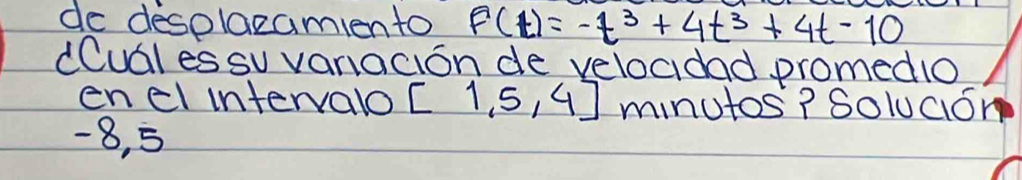 de desplazamiento P(t)= -t³ + 4t³ + 4t - 10
¿Cuál es su variación de velocidad promedio
en el intervalo [ 1,5, 4] minutos? Solución
-8,5